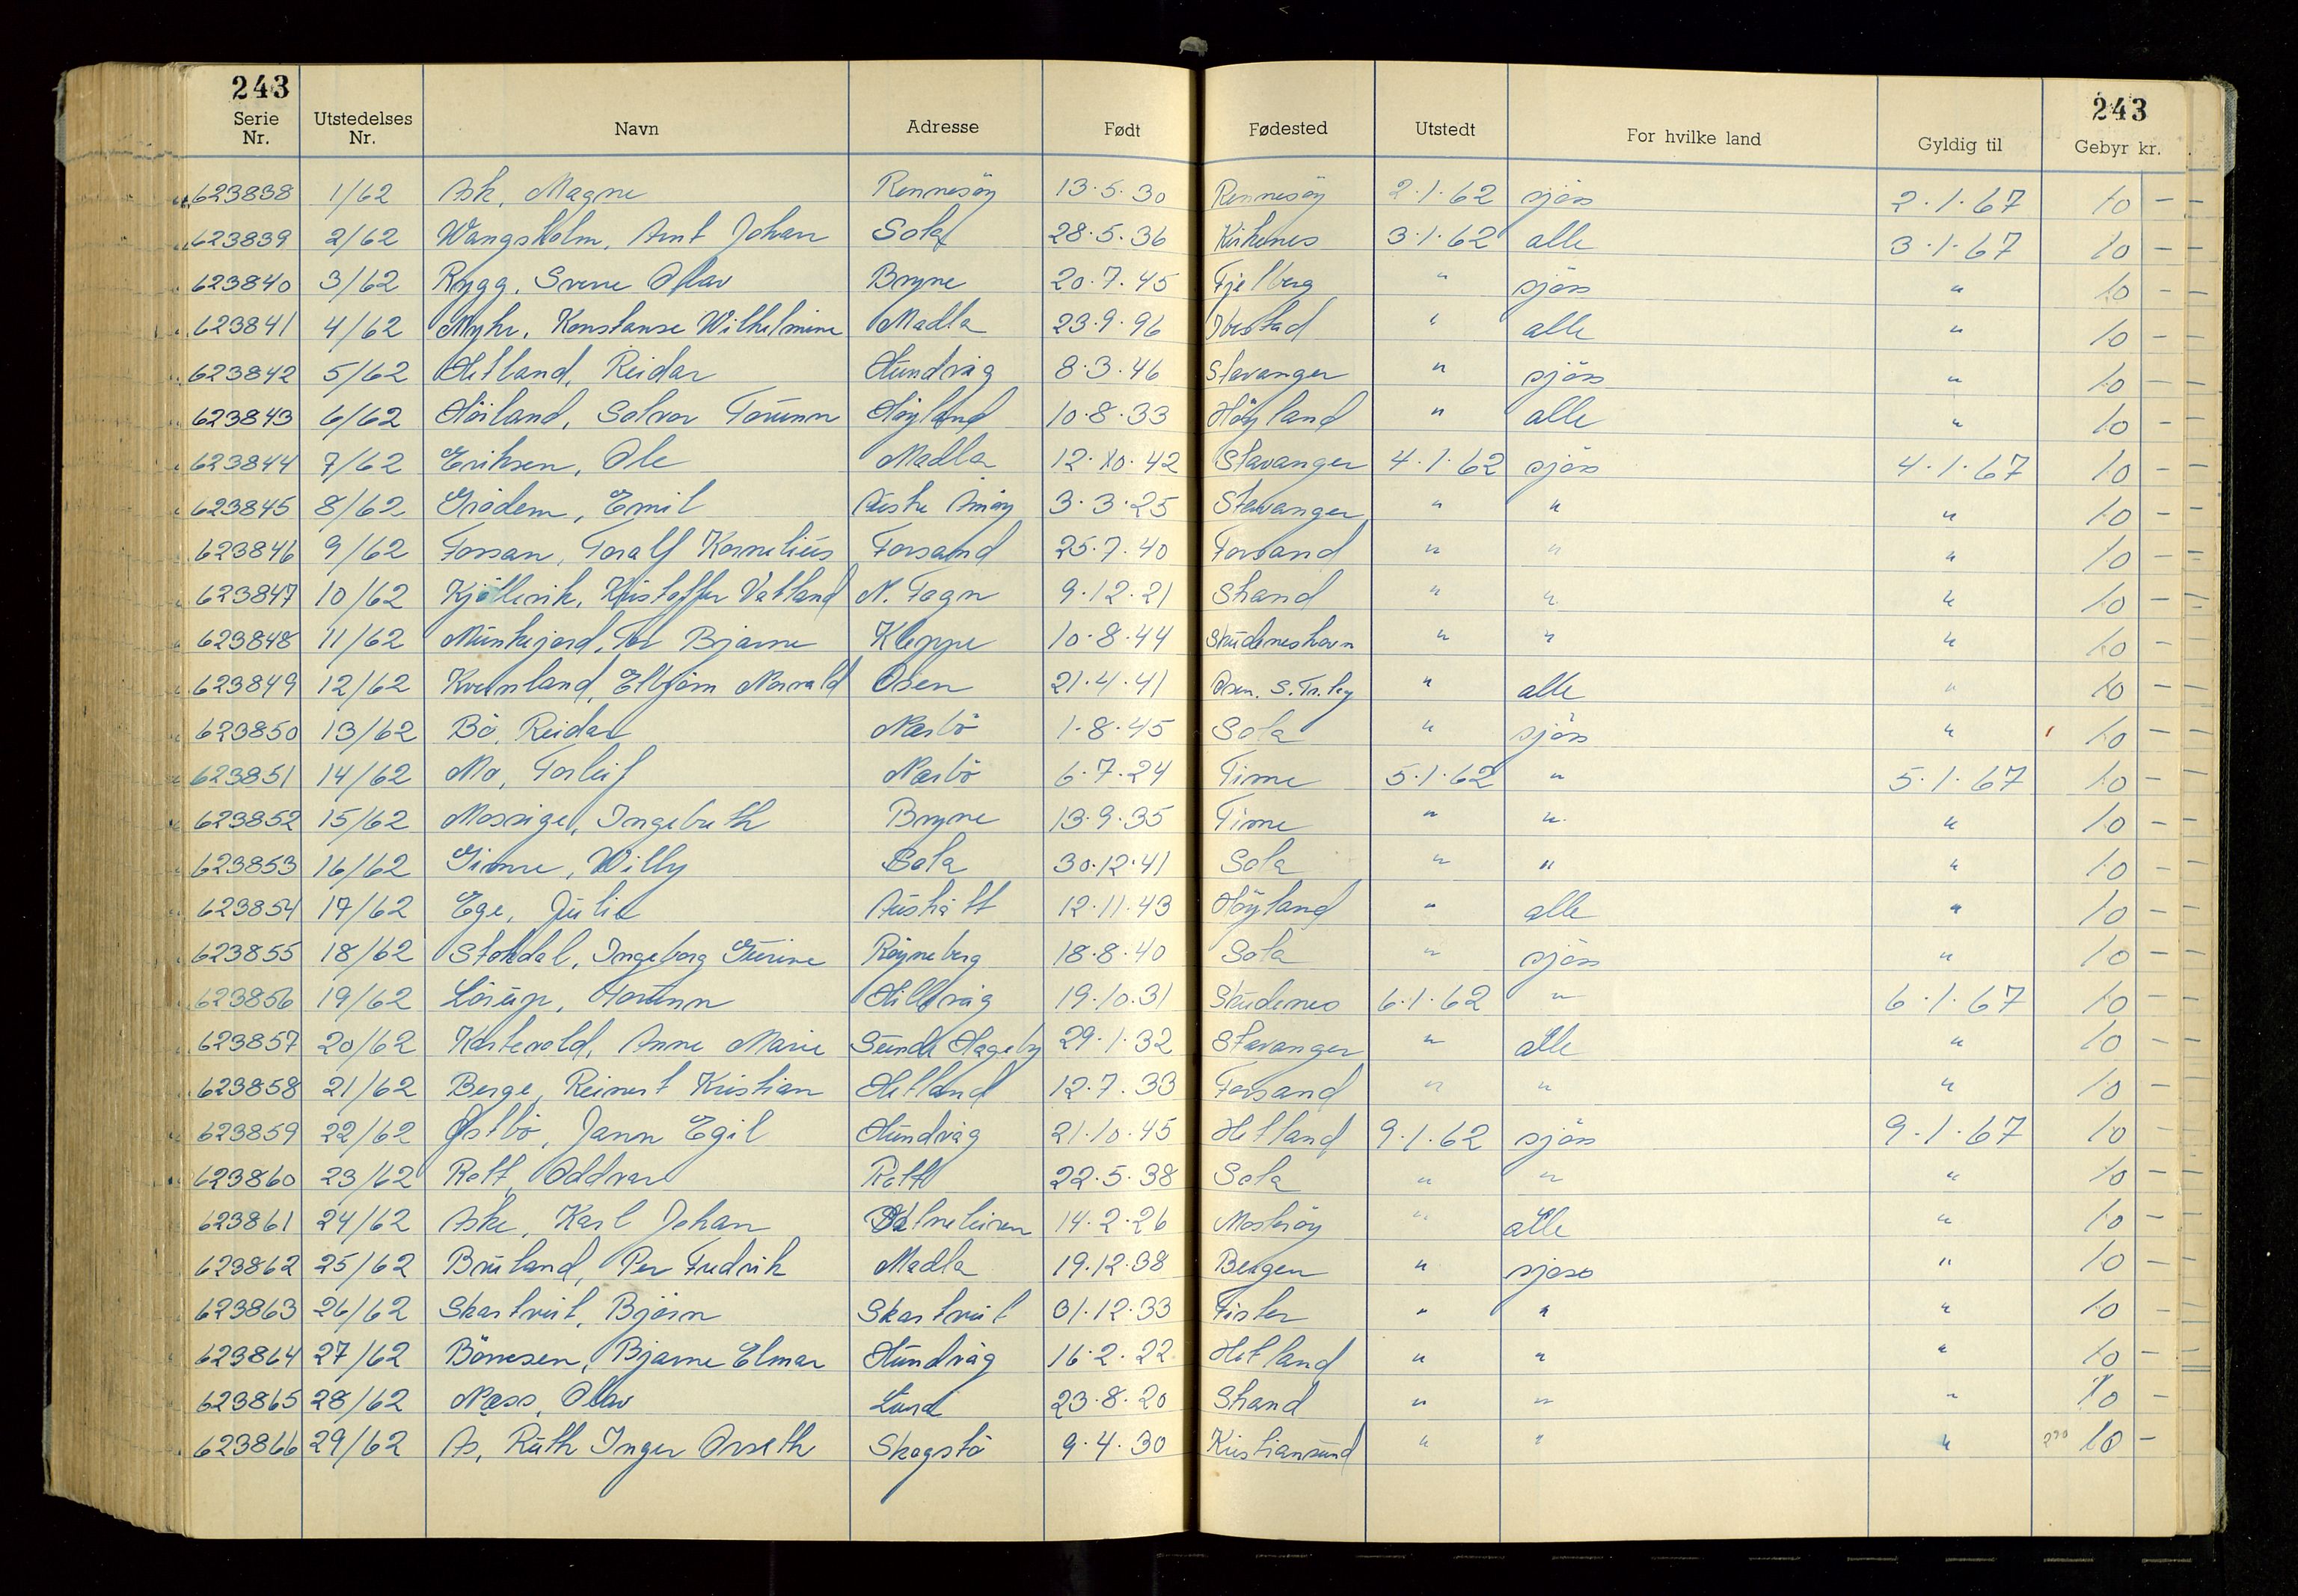 243 243
Serie Nr. Utstedelses Nr. Navn Adresse Født Fødested Utstedt For hvilke land Gyldig til Gebyr kr.
623838 1/62 Ask, Magne Rennesöy 13.5.30 Rennesöy 2.1.62 sjöss 2.1.67 10 –
623839 2/62 Wangsholm, Arnt Johan Sola 28.5.36 Kirkenes 3.1.62 alle 3.1.67 10 –
623840 3/62 Rygg, Sverre Olav Bryne 20.7.45 Fjelberg " sjöss " 10 –
623841 4/62 Myhr, Konstanse Wilhelmine Madla 23.9.96 Ibestad " alle " 10 –
623842 5/62 Hetland, Reidar Hundvåg 8.3.46 Stavanger " sjöss " 10 –
623843 6/62 Höiland, Solvor Torunn Höyland 10.8.33 Höyland " alle " 10 –
623844 7/62 Eriksen, Ole Madla 12.10.42 Stavanger 4.1.62 sjöss 4.1.67 10 –
623845 8/62 Grödem, Emil Austre Åmöy 3.3.25 Stavanger " " " 10 –
623846 9/62 Forsan, Toralf Kornelius Forsand 25.7.40 Forsand " " " 10 –
623847 10/62 Kjöllevik, Kristoffer Vatland N. Fogn 9.12.21 Strand " " " 10 –
623848 11/62 Munkejord, Tor Bjarne Kleppe 10.8.44 Skudeneshavn " " " 10 –
623849 12/62 Kvernland, Elbjörn Norvald Osen 21.4.41 Osen, S. Tr.lag " alle " 10 –
623850 13/62 Bö, Reidar Nærbö 1.8.45 Sola " sjöss " 10 –
623851 14/62 Mo, Torleif Nærbö 6.7.24 Time 5.1.62 " 5.1.67 10 –
623852 15/62 Mossige, Ingebreth Bryne 13.9.35 Time " " " 10 –
623853 16/62 Gimre, Willy Sola 30.12.41 Sola " " " 10 –
623854 17/62 Ege, Julie Austrått 12.11.43 Höyland " alle " 10 –
623855 18/62 Stokdal, Ingeborg Gurine Röyneberg 18.8.40 Sola " sjöss " 10 –
623856 19/62 Lörup, Torunn Hillevåg 19.10.31 Skudenes 6.1.62 " 6.1.67 10 –
623857 20/62 Kartevold, Anne Marie Sunde Hageby 29.1.32 Stavanger " alle " 10 –
623858 21/62 Berge, Reinert Kristian Hetland 12.7.33 Forsand " " " 10 –
623859 22/62 Østbö, Jann Egil Hundvåg 21.10.45 Hetland 9.1.62 sjöss 9.1.67 10 –
623860 23/62 Rott, Oddvar Rott 22.5.38 Sola " " " 10 –
623861 24/62 Aske, Karl Johan 14.2.26 Mosteröy " alle " 10 –
623862 25/62 Bruland, Per Fredrik Madla 19.12.38 Bergen " sjöss " 10 –
623863 26/62 Skartveit, Björn Skartveit 31.12.33 Fister " " " 10 –
623864 27/62 Börresen, Bjarne Elmar Hundvåg 16.2.22 Hetland " " " 10 –
623865 28/62 Næss, Olav Lura 23.8.20 Strand " " " 10 –
623866 29/62 As, Ruth Inger Orseth Skogstö 9.4.30 Kristiansund " " " 290 10 –